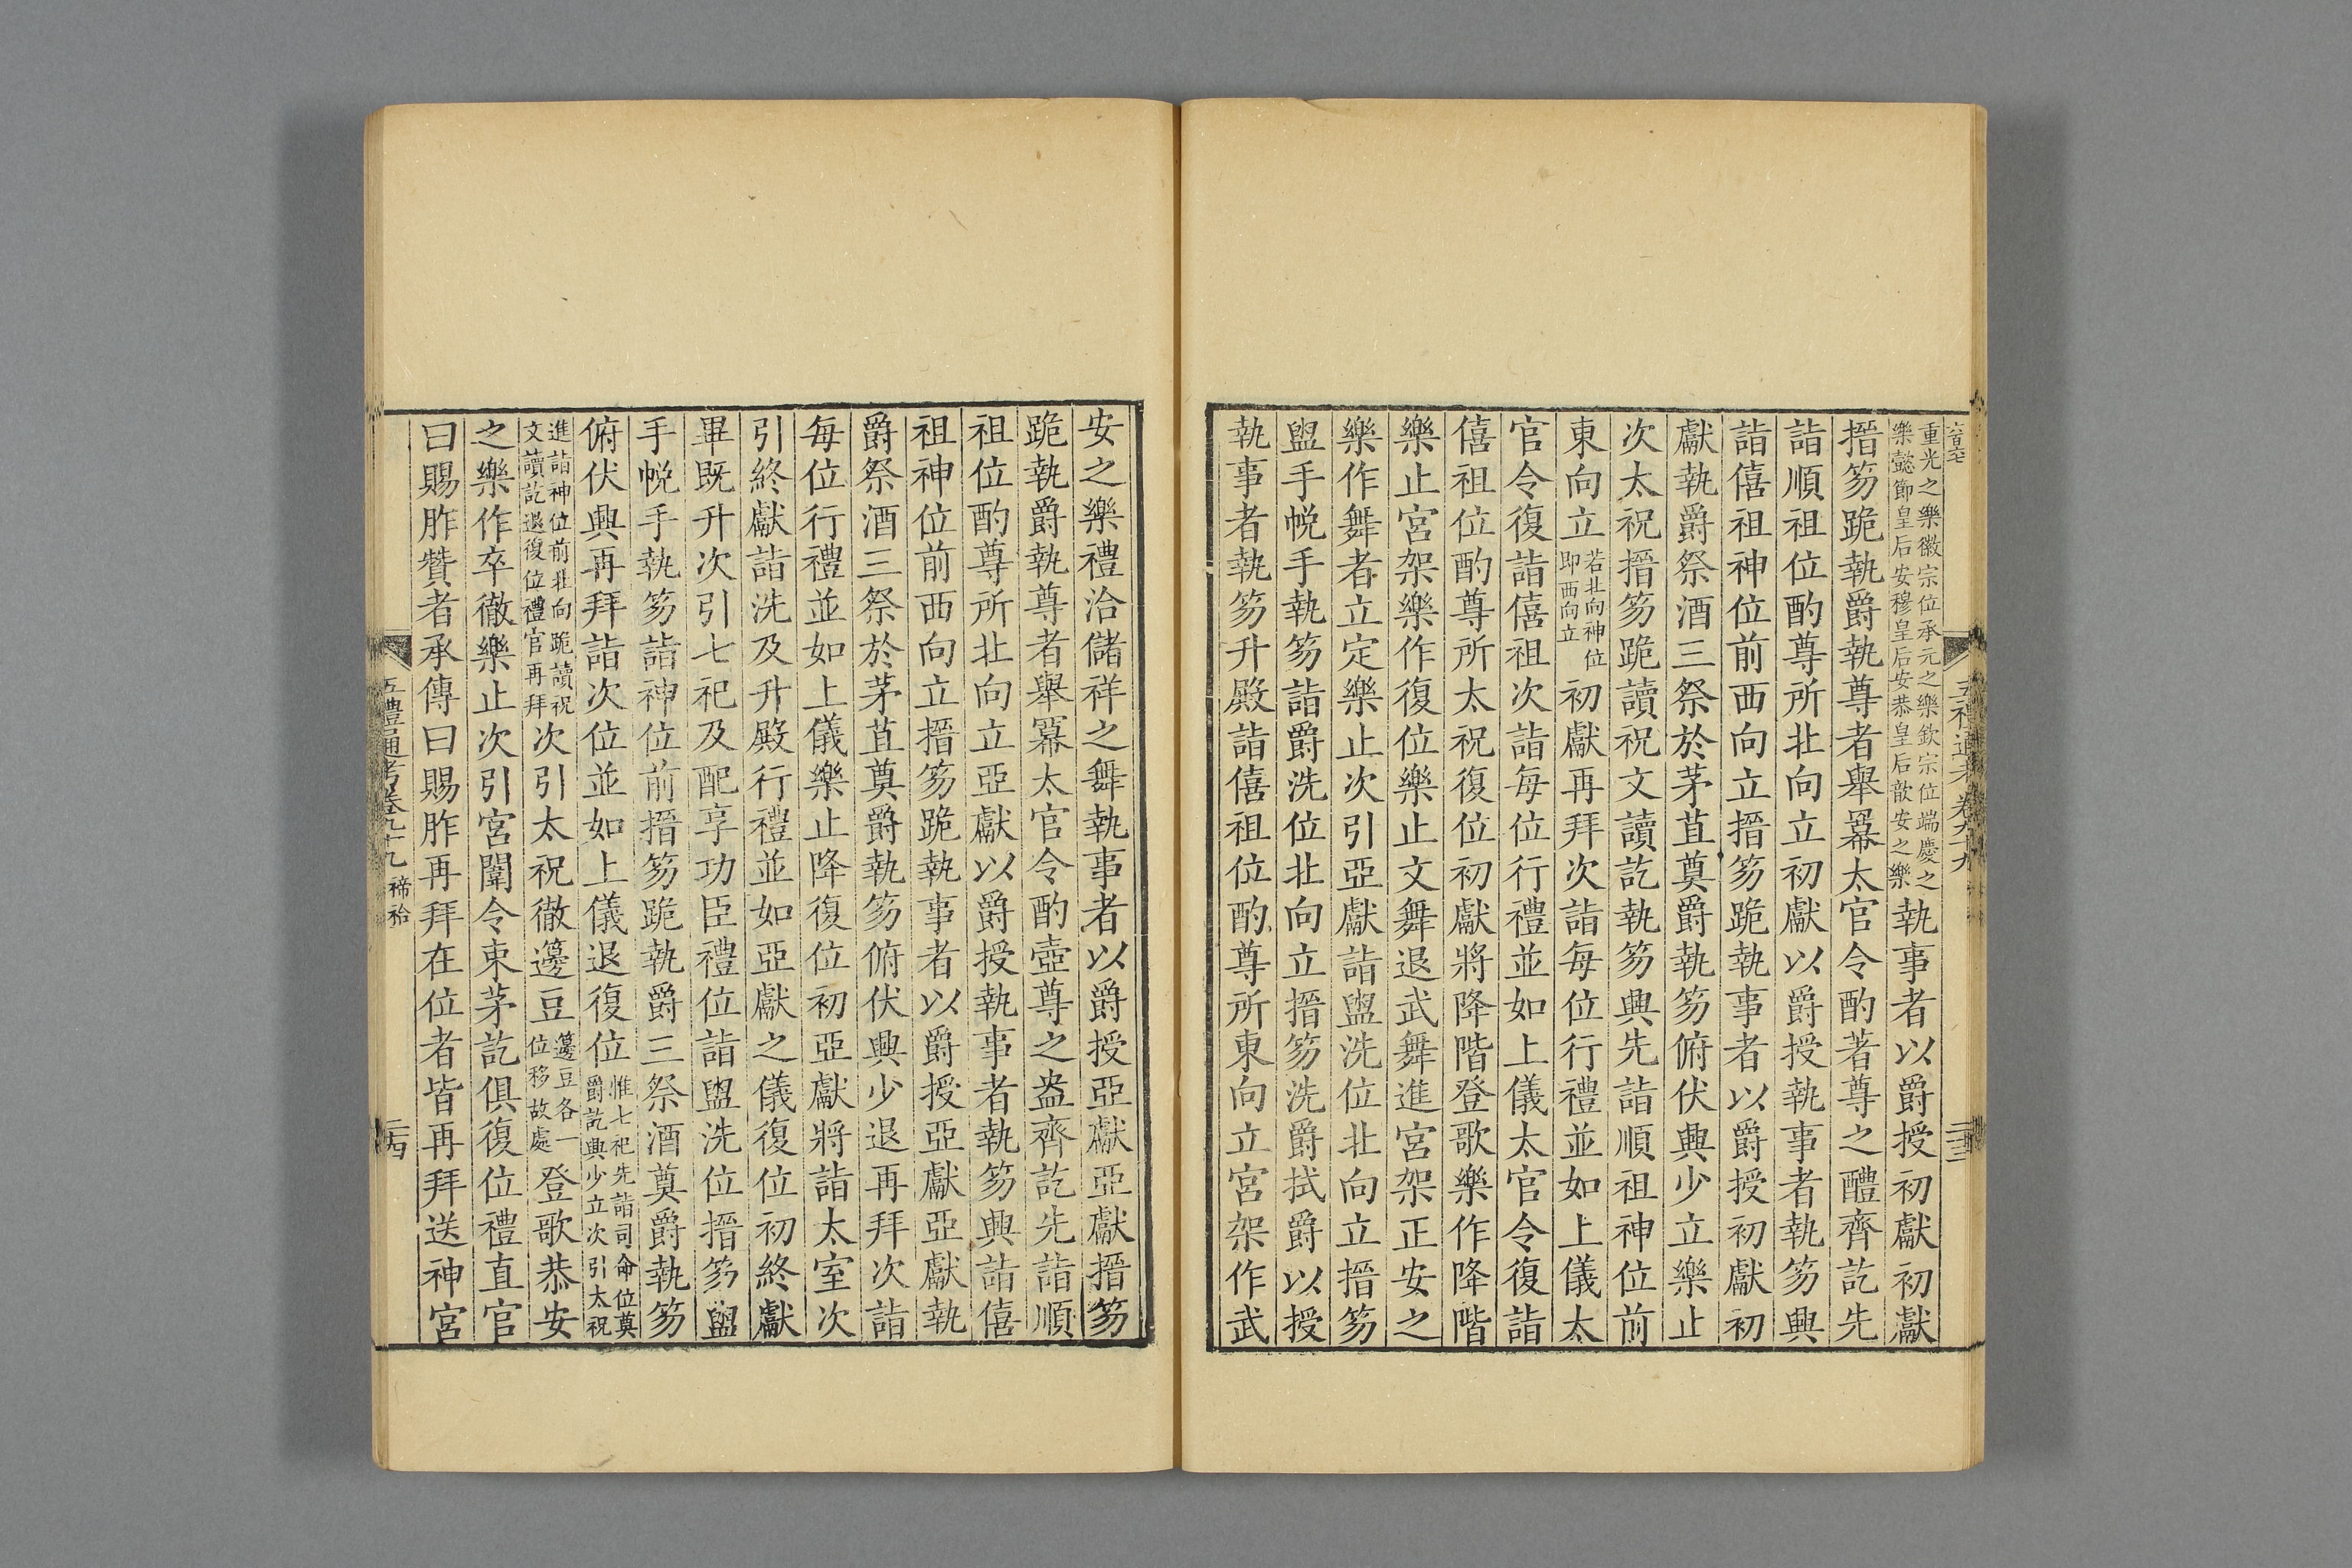 重光之樂徽宗位承元之樂欽宗位端慶之
樂懿節皇后安穆皇后安恭皇后歆安之樂
執事者以爵授初獻初獻
搢笏跪執爵執尊者舉羃太官令酌著尊之醴齊訖先
詣順祖位酌尊所北向立初獻以爵授執事者執笏興
詣僖祖神位前西向立搢笏跪執事者以爵授初獻初
獻執爵祭酒三祭於茅苴奠爵執笏俯伏興少立樂止
次太祝搢笏跪讀祝文讀訖執笏興先詣順祖神位前
東向立
若北向神位
即西向立
初獻再拜次詣每位行禮並如上儀太
官令復詣僖祖次詣每位行禮並如上儀太官令復詣
僖祖位酌尊所太祝復位初獻將降階登歌樂作降階
樂止宮架樂作復位樂止文舞退武舞進宮架正安之
樂作舞者立定樂止次引亞獻詣盥洗位北向立搢笏
盥手帨手執笏詣爵洗位北向立搢笏洗爵拭爵以授
執事者執笏升殿詣僖祖位酌尊所東向立宮架作武
安之樂禮洽儲祥之舞執事者以爵授亞獻亞獻搢笏
跪執爵執尊者舉羃太官令酌壺尊之盎齊訖先詣順
祖位酌尊所北向立亞獻以爵授執事者執笏興詣僖
祖神位前西向立搢笏跪執事者以爵授亞獻亞獻執
爵祭酒三祭於茅苴奠爵執笏俯伏興少退再拜次詣
每位行禮並如上儀樂止降復位初亞獻將詣太室次
引終獻詣洗及升殿行禮並如亞獻之儀復位初終獻
畢既升次引七祀及配享功臣禮位詣盥洗位搢笏盥
手帨手執笏詣神位前搢笏跪執爵三祭酒奠爵執笏
俯伏興再拜詣次位並如上儀退復位
惟七祀先詣司命位奠
爵訖興少立次引太祝
進詣神位前北向跪讀祝
文讀訖退復位禮官再拜
次引太祝徹籩豆
籩豆各一
位移故處
登歌恭安
之樂作卒徹樂止次引宮闈令束茅訖俱復位禮直官
曰賜胙贊者承傳曰賜胙再拜在位者皆再拜送神宮
五禮通考卷九十九 禘祫
二十四